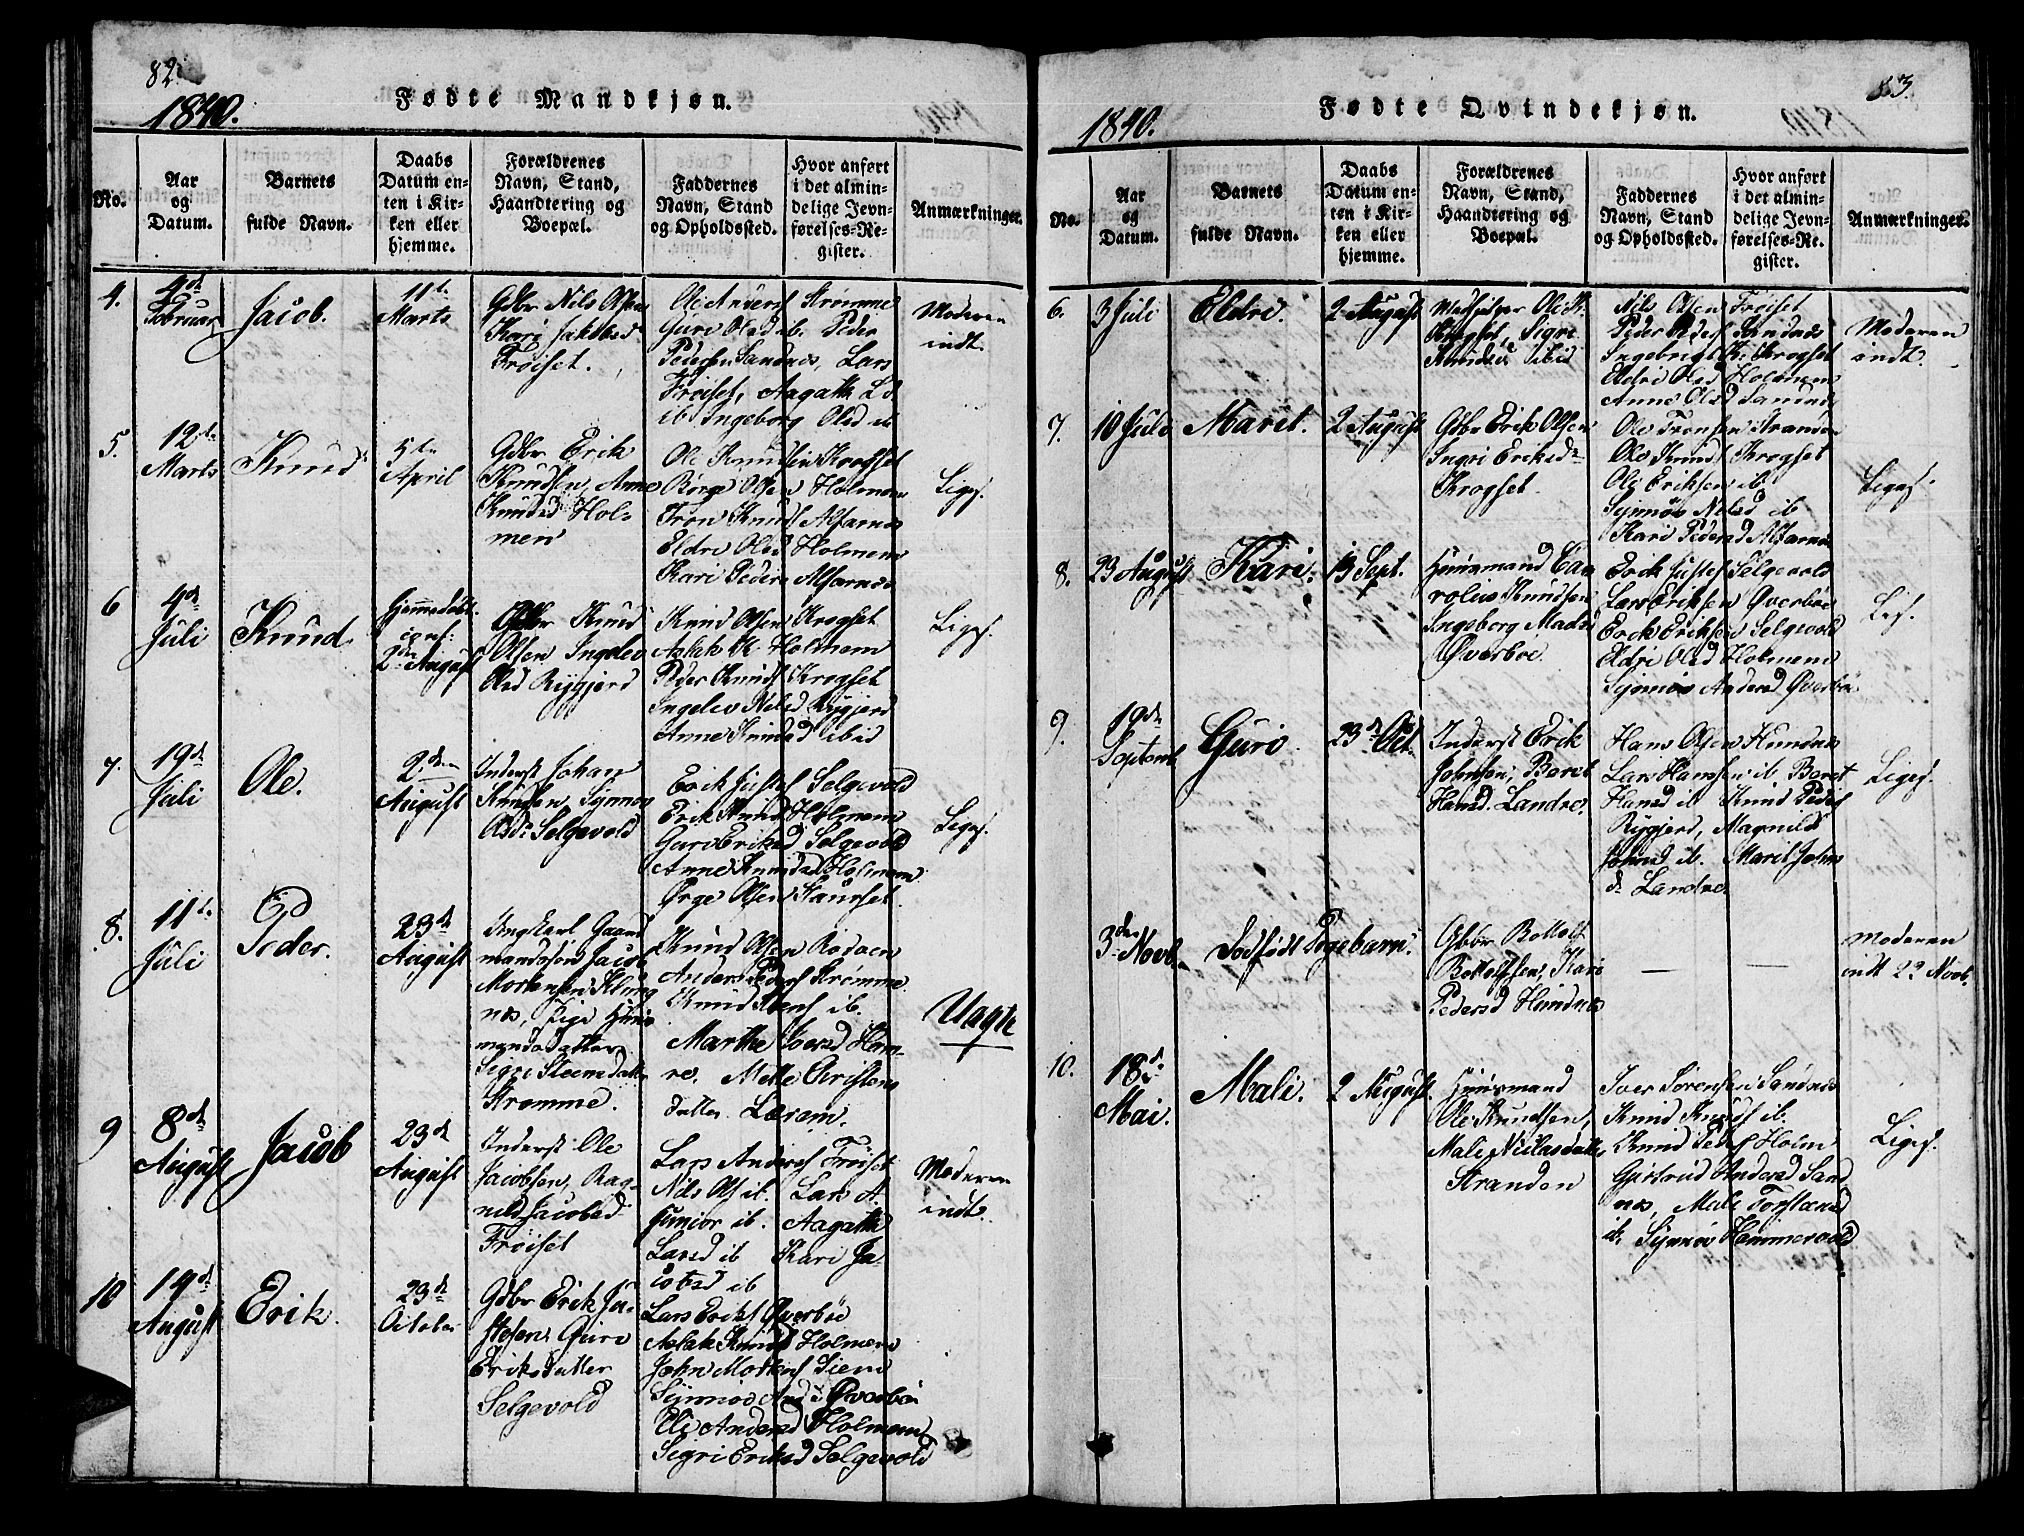 82.
1840.
Fødte Mandkjøn.
No.
Aar og Datum.
Barnets fulde Navn.
Daabs Datum enten i Kirken eller hjemme.
Forældrenes Navn, Stand, Haandtering og Boepæl.
Faddernes Navn, Stand og Opholdssted.
Hvor anført i det almindelige Jevnførelses-Register.
Anmærkninger.
4.
4de Februar
Jacob.
11te Marts
Gdbr Nils Olsen
Kari Jakobsd
Frøiset.
Ole Anders Strømme
Guri Olsd ib. Peder
Pedersen Sandnæs, Lars
Frøiset, Aagathe L.d.
ib Ingeborg Olsd ib
Moderen
indt.
5.
12te Marts
Knud
5te April
Gdbr Erik
Knudsen, Anne
Knudsd Holmen
Ole Knudsen Krogset
Børge Olsen Holmem
Tron Knuds Alfarnæs
Eldri Olsd Holmem
Kari Peders Alfarnæs
Ligesaa.
6
4de Juli
Knud
Hjemmedøbt
conf:
2den August
Gdbr Knud
Olsen Ingelev
Olsd Rygjerd
Knud Olsen Krogset
Aslak K. Holmem
Peder Knuds Krogset
Ingelev Nilsd Rygjerd
Anne Knudsd ibid
Liges.
7.
19de Juli
Ole.
2den August
Inderst Johan
Knudsen, Synnøv
Olsd. Selgevold
Erik Justes Selgevold
Erik Knuds Holmem
Guri Eriksd Selgevold
Anne Knudsd Holmem
Ørge Olsen Staurset
Liges.
8.
11te Juli
Peder.
23de August
Ungkarl Gaard
mandssøn Jacob
Mortensen Klung
næs, Pige Huus
mandsdatter
Sigri Steensdatter
Strømme.
Knud Olsen Rødven
Anders Peders Strømme
Knud Steens ib.
Marthe Iversd Ham-
re. Mette Christens
datter Lerem.
Uægte
9
8de August
Jacob
23de August
Inderst Ole
Jacobsen, Rag-
nild Jacobsd
Frøiset
Lars Anders Frøiset
Nils Ols ib. Lars A.
junior ib. Aagathe
Larsd ib Kari Ja-
cobsd ib
Moderen
indt.
10
14de August
Erik.
23de October
Gdbr Erik Ju-
stesen, Guri
Eriksdatter
Selgevold
Lars Eriks Øverbøe
Aslak Knuds Holmem
John Mortens Siem
Synnøv And.d. Øverbøe
Eli Andersd Holmem
Sigri Eriksd Selgevold
83.
1840.
Fødte Qvindekjøn.
No.
Aar og Datum.
Barnets fulde Navn.
Daabs Datum enten i Kirken eller hjemme.
Forældrenes Navn, Stand, Haandtering og Boepæl.
Faddernes Navn, Stand og Opholdssted.
Hvor anført i det almindelige Jevnførelses-Register.
Anmærkninger.
6.
3 Juli
Eldri.
2 August
Medhjelper Ole K.
Krogset, Sigri
Knudsd ibid
Nils Olsen Frøiset
Peder Peders Sandnæs
Ingebrigt K. Krogset
Eldri Olsd Holmem
Anne Olsd Sandnæs
Moderen
indt.
7.
10 Juli
Marit.
2 August
Gdbr Erik Olsen
Ingri Eriksd
Krogset.
Ole Tronsen Stranden
Ole Knuds Krogset
Ole Eriksen ib
Synnøv Nilsd ib
Kari Pedersd Alfarnæs
Liges.
8.
23 August
Kari.
13 Sept.
Huusmand Ca-
rolus Knudsen
Ingeborg Madsd
Øverbøe.
Erik Justes Selgevold
Lars Eriksen Øverbøe
Erik Eriksen Selgevold
Eldri Olsd Holmem
Synnøv Andersd Øverbøe
Les.
9.
19de Septemb
Guro
23de Oct.
Inderst Erik
Johnsen, Beret
Hansd. Landre.
Hans Olsen Hundnæs
Lars Hanssen ib. Beret
Hansd ib Knud Peders
Rygjerd, Magnild
Johnsd ib. Marit Johns
d. Landre.
Liges.
3die Novb.
Dødfødt Pigebarn.
Gbbr Bottolf
Bottolfsen, Kari
Pedersd Hundnæs
Moderen
indt 29 Novb.
10.
18de Mai.
Mali.
2 August.
Huusmand
Ole Knudsen,
Mali Nielsdatter
Stranden
Iver Sørensen Sandnæs
Knud Knuds ib.
Knud Peders Holm
Gjertrud Andersd Sand
næs, Mali Torstensd
ib. Synnøv Hammervold
Liges.